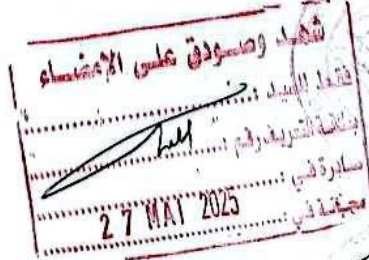 شهد وصودق على الإمضاء
فقط السيد :
بطاقة التعريف رقم :
صادرة في :
27 MAI 2025